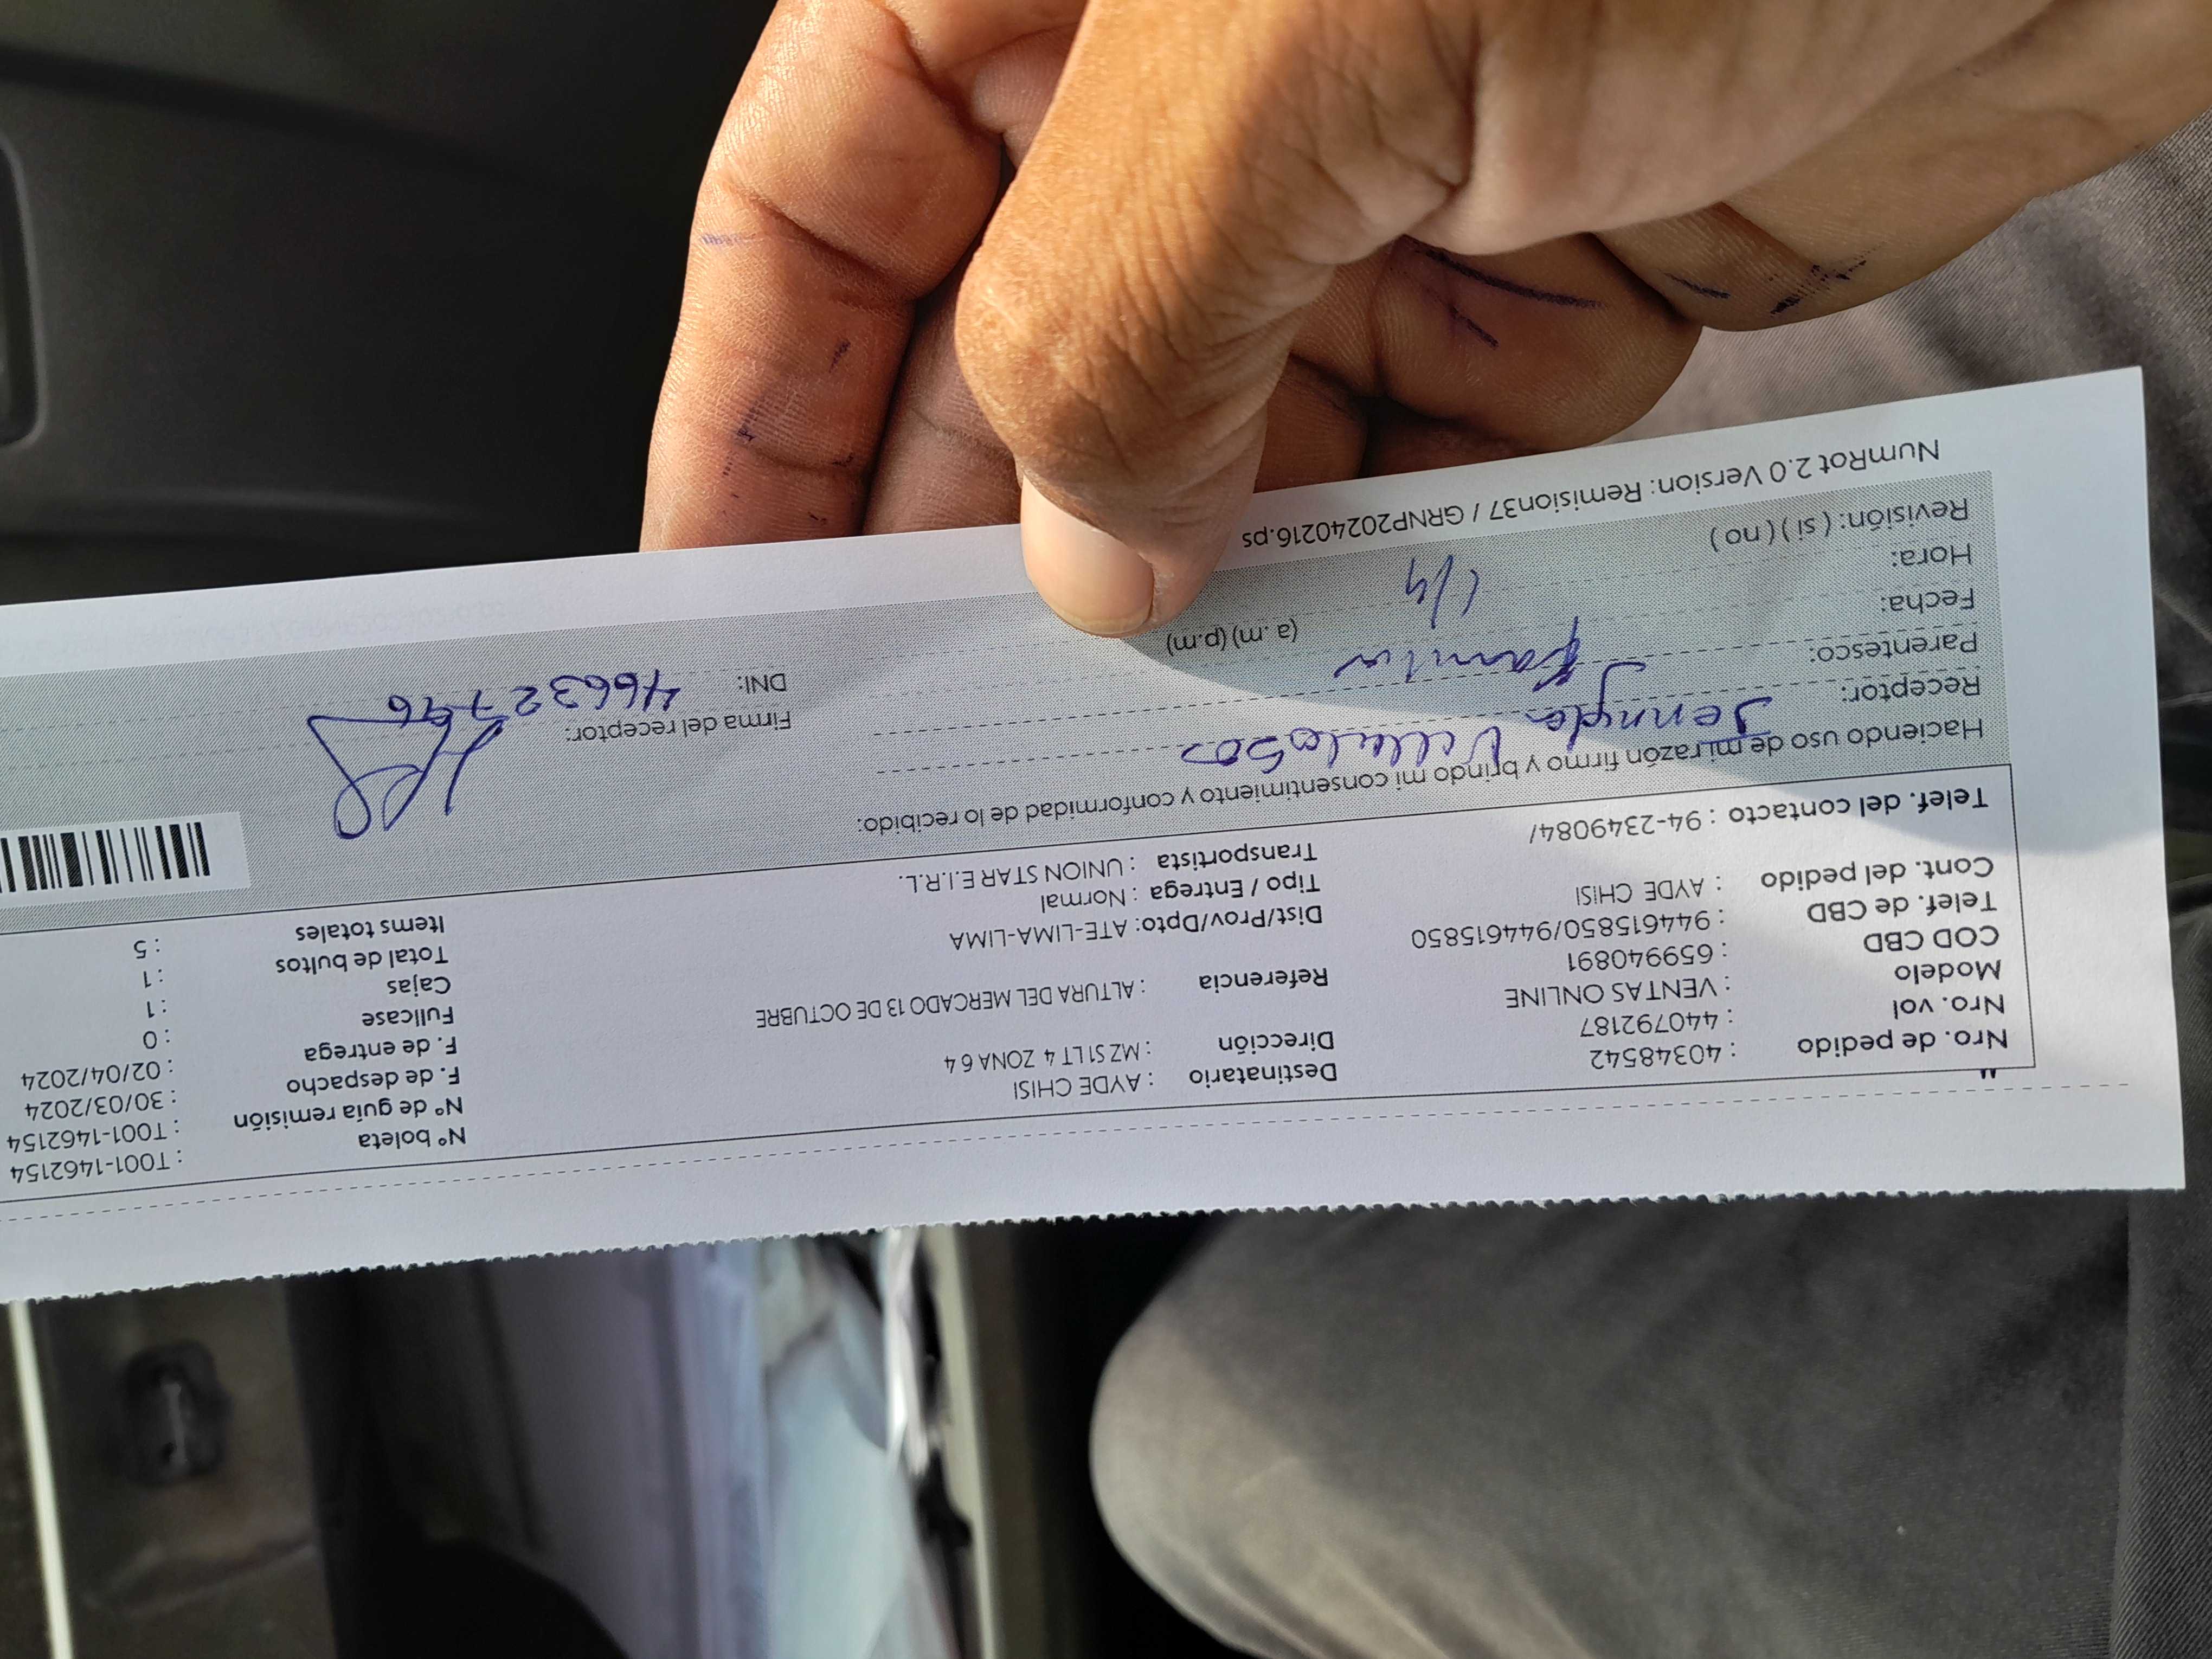 Nro. de pedido : 40348542
Nro. vol : 440792187
Modelo : VENTAS ONLINE
COD CBD : 659940891
Telef. de CBD : 944615850/944615850
Cont. del pedido : AYDE CHISI
Telef. del contacto : 94-2349084/
Destinatario : AYDE CHISI
Dirección : MZ S1 LT 4 ZONA 6 4
Referencia : ALTURA DEL MERCADO 13 DE OCTUBRE
Dist/Prov/Dpto: ATE-LIMA-LIMA
Tipo / Entrega : Normal
Transportista : UNION STAR E.I.R.L.
N° boleta : T001-1462154
N° de guía remisión : T001-1462154
F. de despacho : 30/03/2024
F. de entrega : 02/04/2024
Fullcase : 0
Cajas : 1
Total de bultos : 1
Items totales : 5
Haciendo uso de mi razón firmo y brindo mi consentimiento y conformidad de lo recibido:
Receptor:
Parentesco: familia
Fecha: 1/4
Hora: (a. m) (p.m)
Revisión: ( si ) ( no )
Firma del receptor:
DNI: 46632796
NumRot 2.0 Version: Remision37 / GRNP20240216.ps